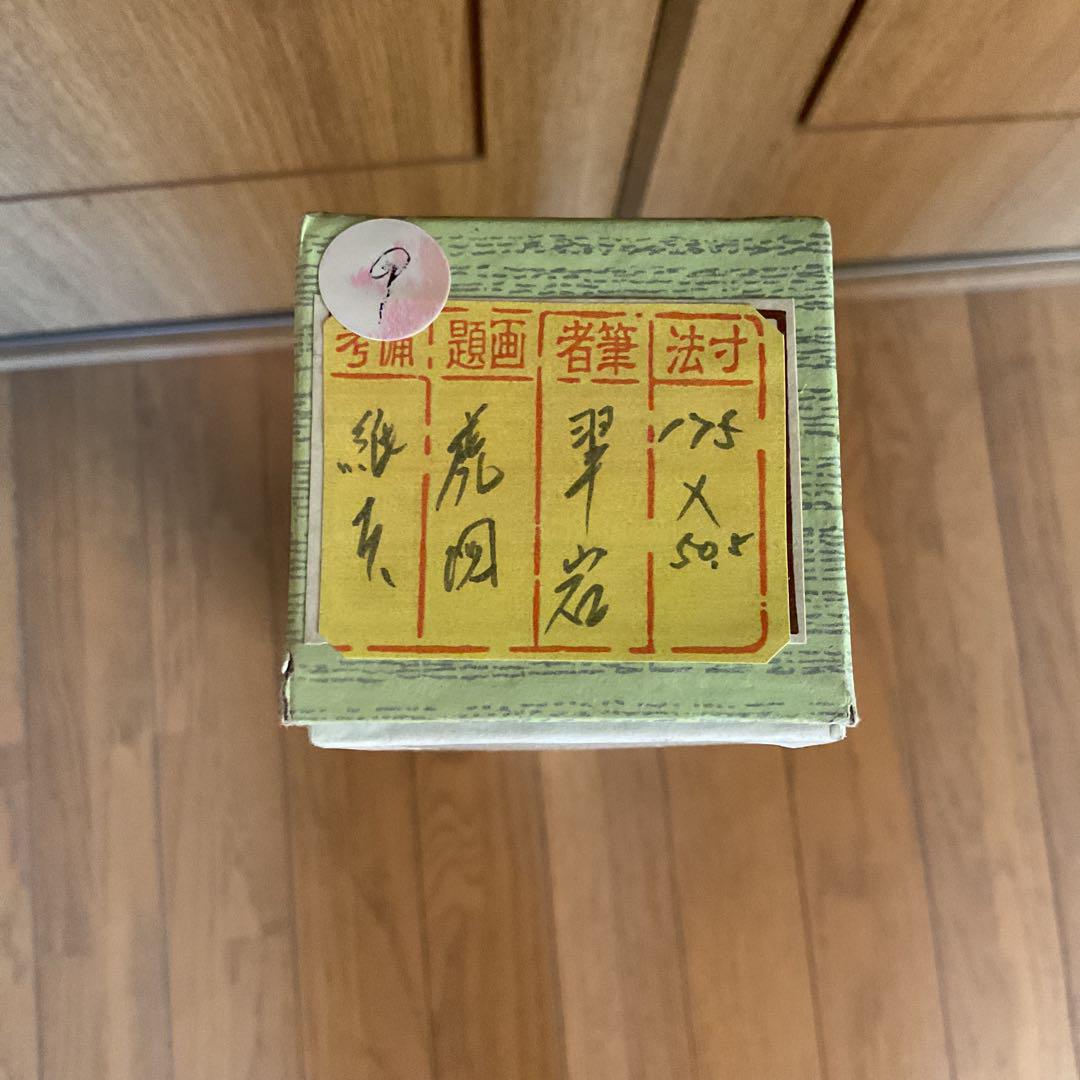 9
寸法
175
×
50.5
筆者
翠岩
画題
虎図
備考
紙本